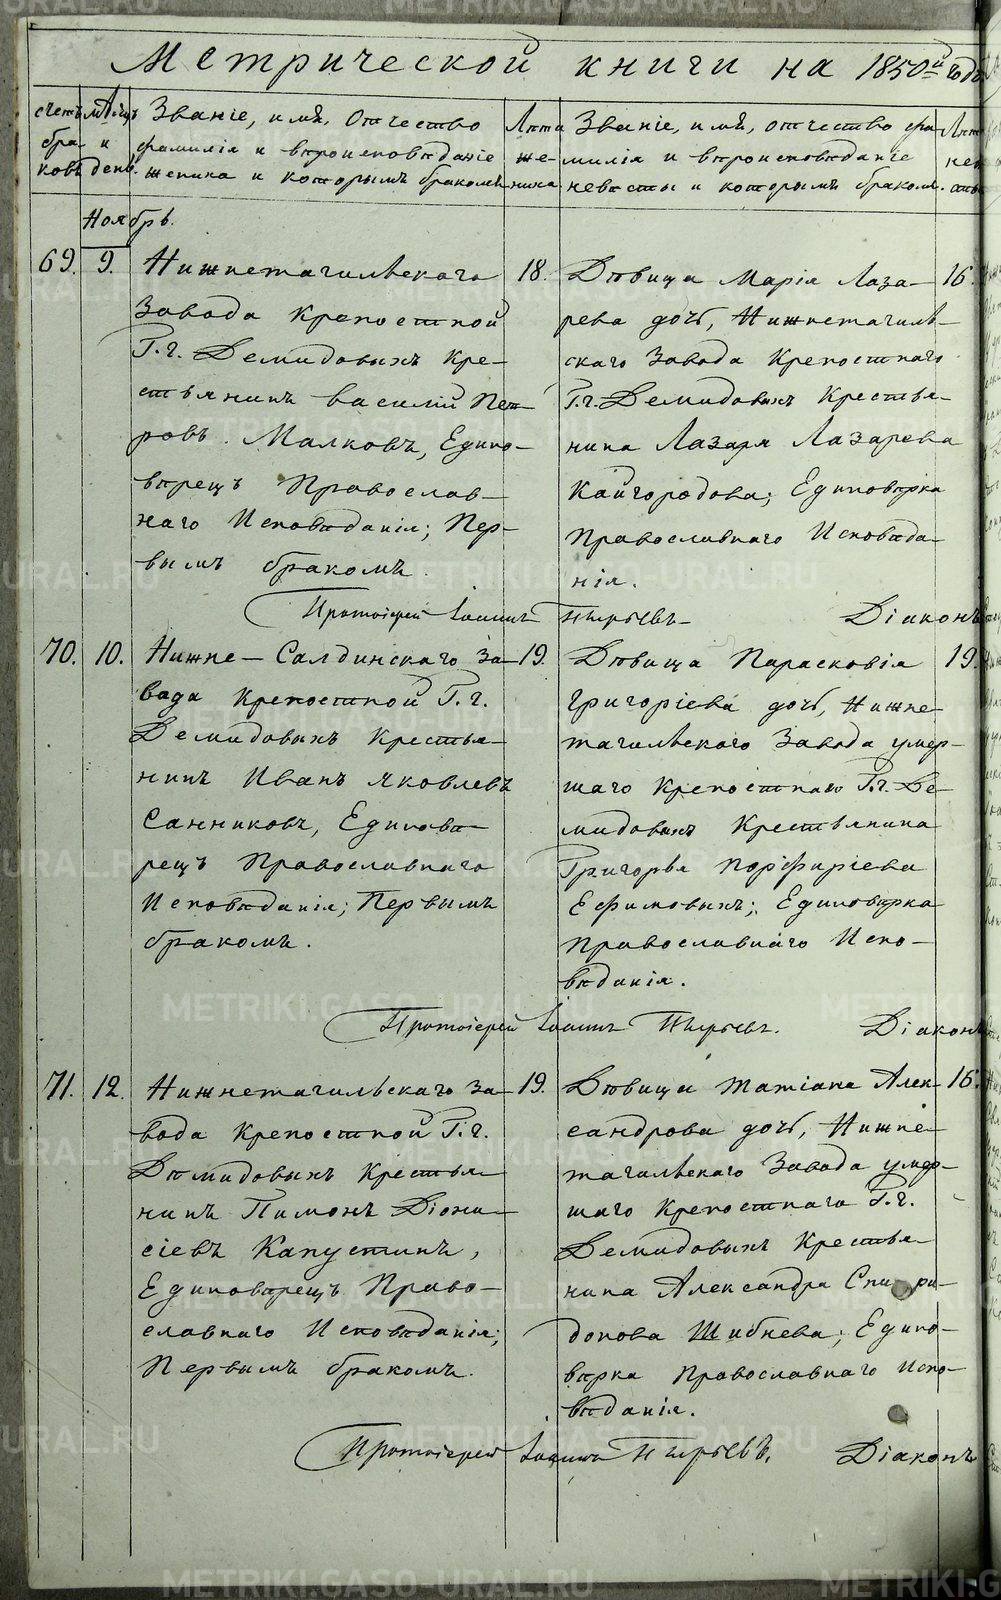 Метрической книги на 1850й годъ
счетъ бра- ковъ
мѣсяцъ и день.
Званіе, имя, отчество
фамилія и вѣроисповѣданіе
жениха и которымъ бракомъ
Лѣта же- ниха
Званіе, имя, отчество фа-
милія и вѣроисповѣданіе
невѣсты и которымъ бракомъ.
Лѣта не- вѣсты
Ноябрь.
69. 9.
Нижнетагильскаго
Завода Крепостной
Г.г. Демидовыхъ Кре-
стьянинъ Василій Пет-
ровъ. Малковъ, Едино-
вѣрецъ Православ-
наго Исповѣданія; Пер-
вымъ бракомъ.
18.
Дѣвица Марія Лаза-
рева дочь, Нижнетагиль-
скаго Завода Крепостнаго
Г.г. Демидовыхъ Крестья-
нина Лазаря Лазарева
Кайгородова; Единовѣрка
Православнаго Исповѣда-
нія.
16.
Протоіерей Іоаннъ Пырьевъ Діаконъ
70. 10.
Нижне-Салдинскаго За-
вода Крепостной Г.г.
Демидовыхъ Крестья-
нинъ Иванъ Яковлевъ
Санниковъ, Единовѣ-
рецъ Православнаго
Исповѣданія; Первымъ
бракомъ.
19.
Дѣвица Парасковія
Григоріева дочь, Нижне-
тагильскаго Завода умер-
шаго Крепостнаго Г.г. Де-
мидовыхъ Крестьянина
Григорья Порфиріева
Ефимовыхъ; Единовѣрка
Православнаго Испо-
вѣданія.
19.
Протоіерей Іоаннъ Пырьевъ. Діаконъ
71. 12.
Нижнетагильскаго За-
вода Крепостной Г.г.
Демидовыхъ Крестья-
нинъ Пимонъ Діони-
сіевъ Капустинъ,
Единовѣрецъ Право-
славнаго Исповѣданія;
Первымъ бракомъ.
19.
Дѣвица Татіана Алек-
сандрова дочь, Нижне-
тагильскаго Завода умер-
шаго Крепостнаго Г.г.
Демидовыхъ Крестья-
нина Александра Спири-
донова Шибнева; Едино-
вѣрка Православнаго Испо-
вѣданія.
16.
Протоіерей Іоаннъ Пырьевъ. Діаконъ
METRIKI.GASO-URAL.RU